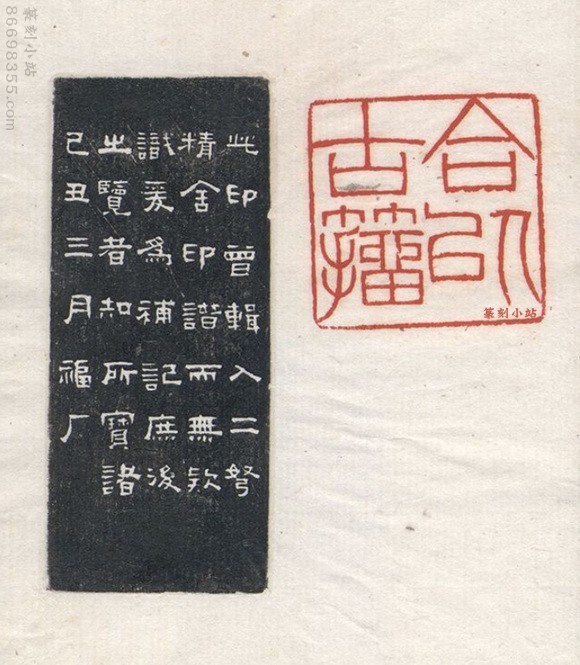 合以古籀
篆刻小站
此印曾輯入二弩
精舍印譜而無款
識爰爲補記庶後
之覽者知所寶諸
己丑三月福厂
篆刻小站
86698355.com